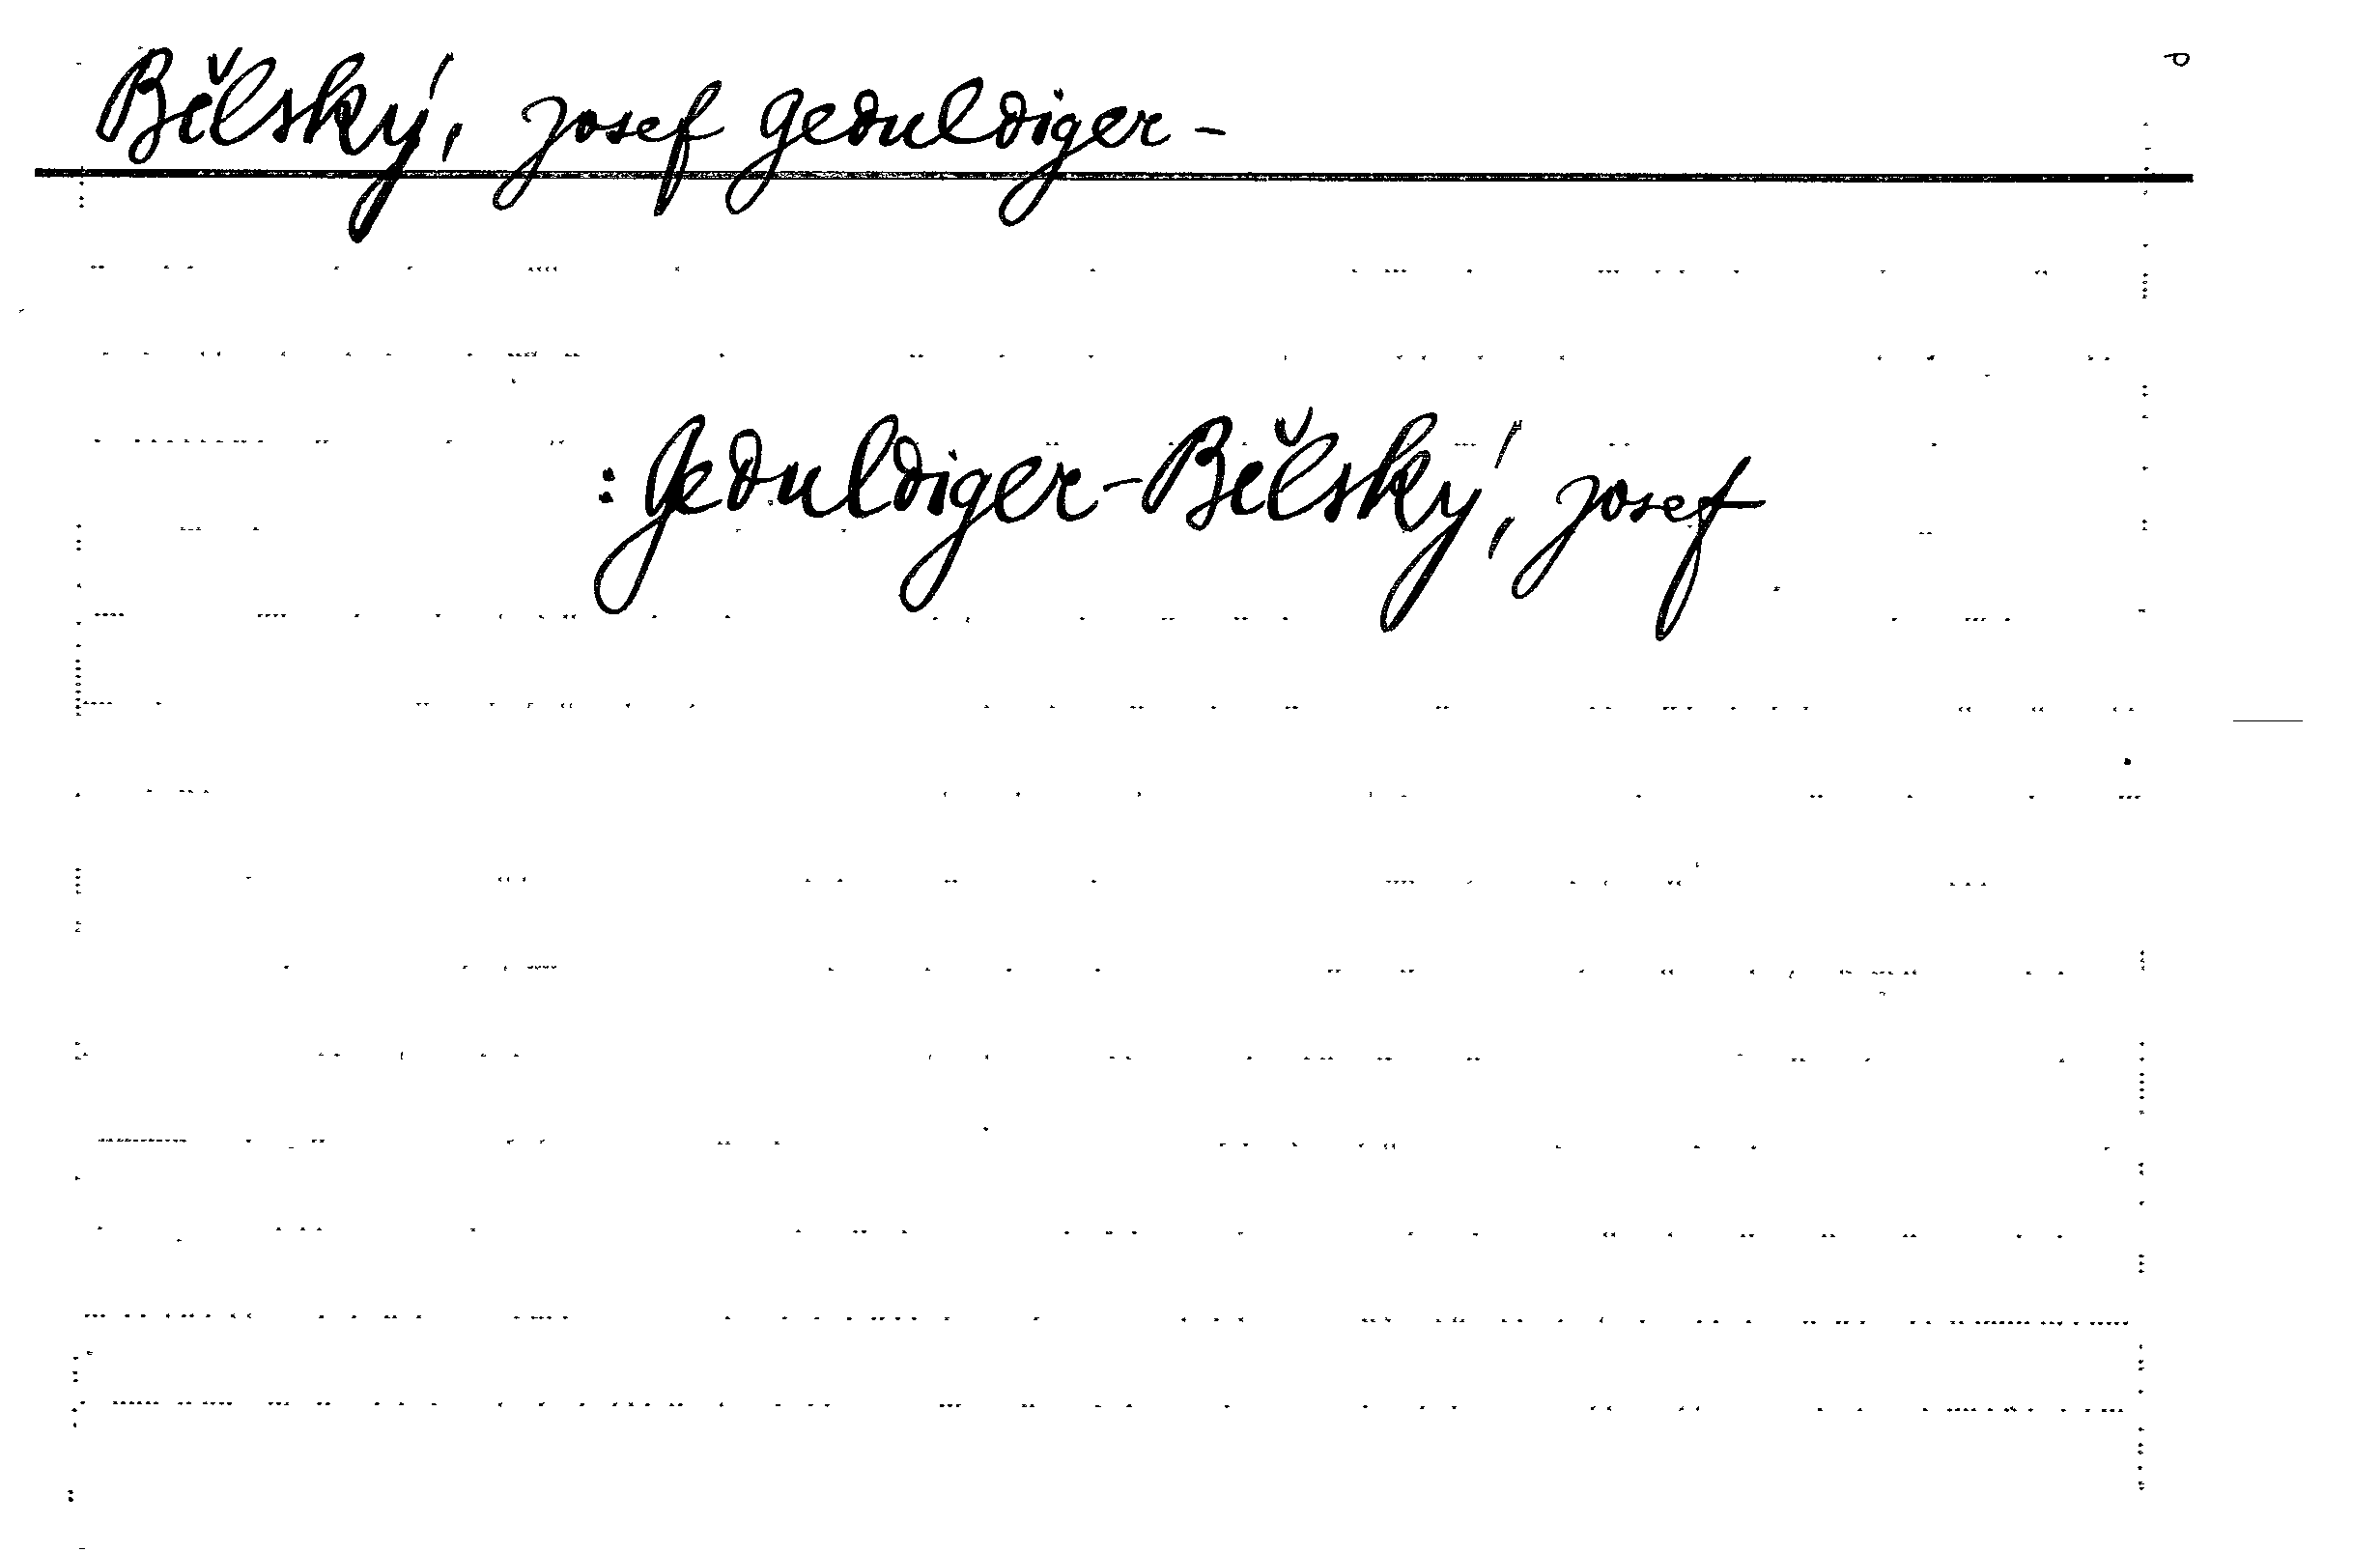 Bělský, Josef Geduldiger -
: Geduldiger-Bělský, Josef